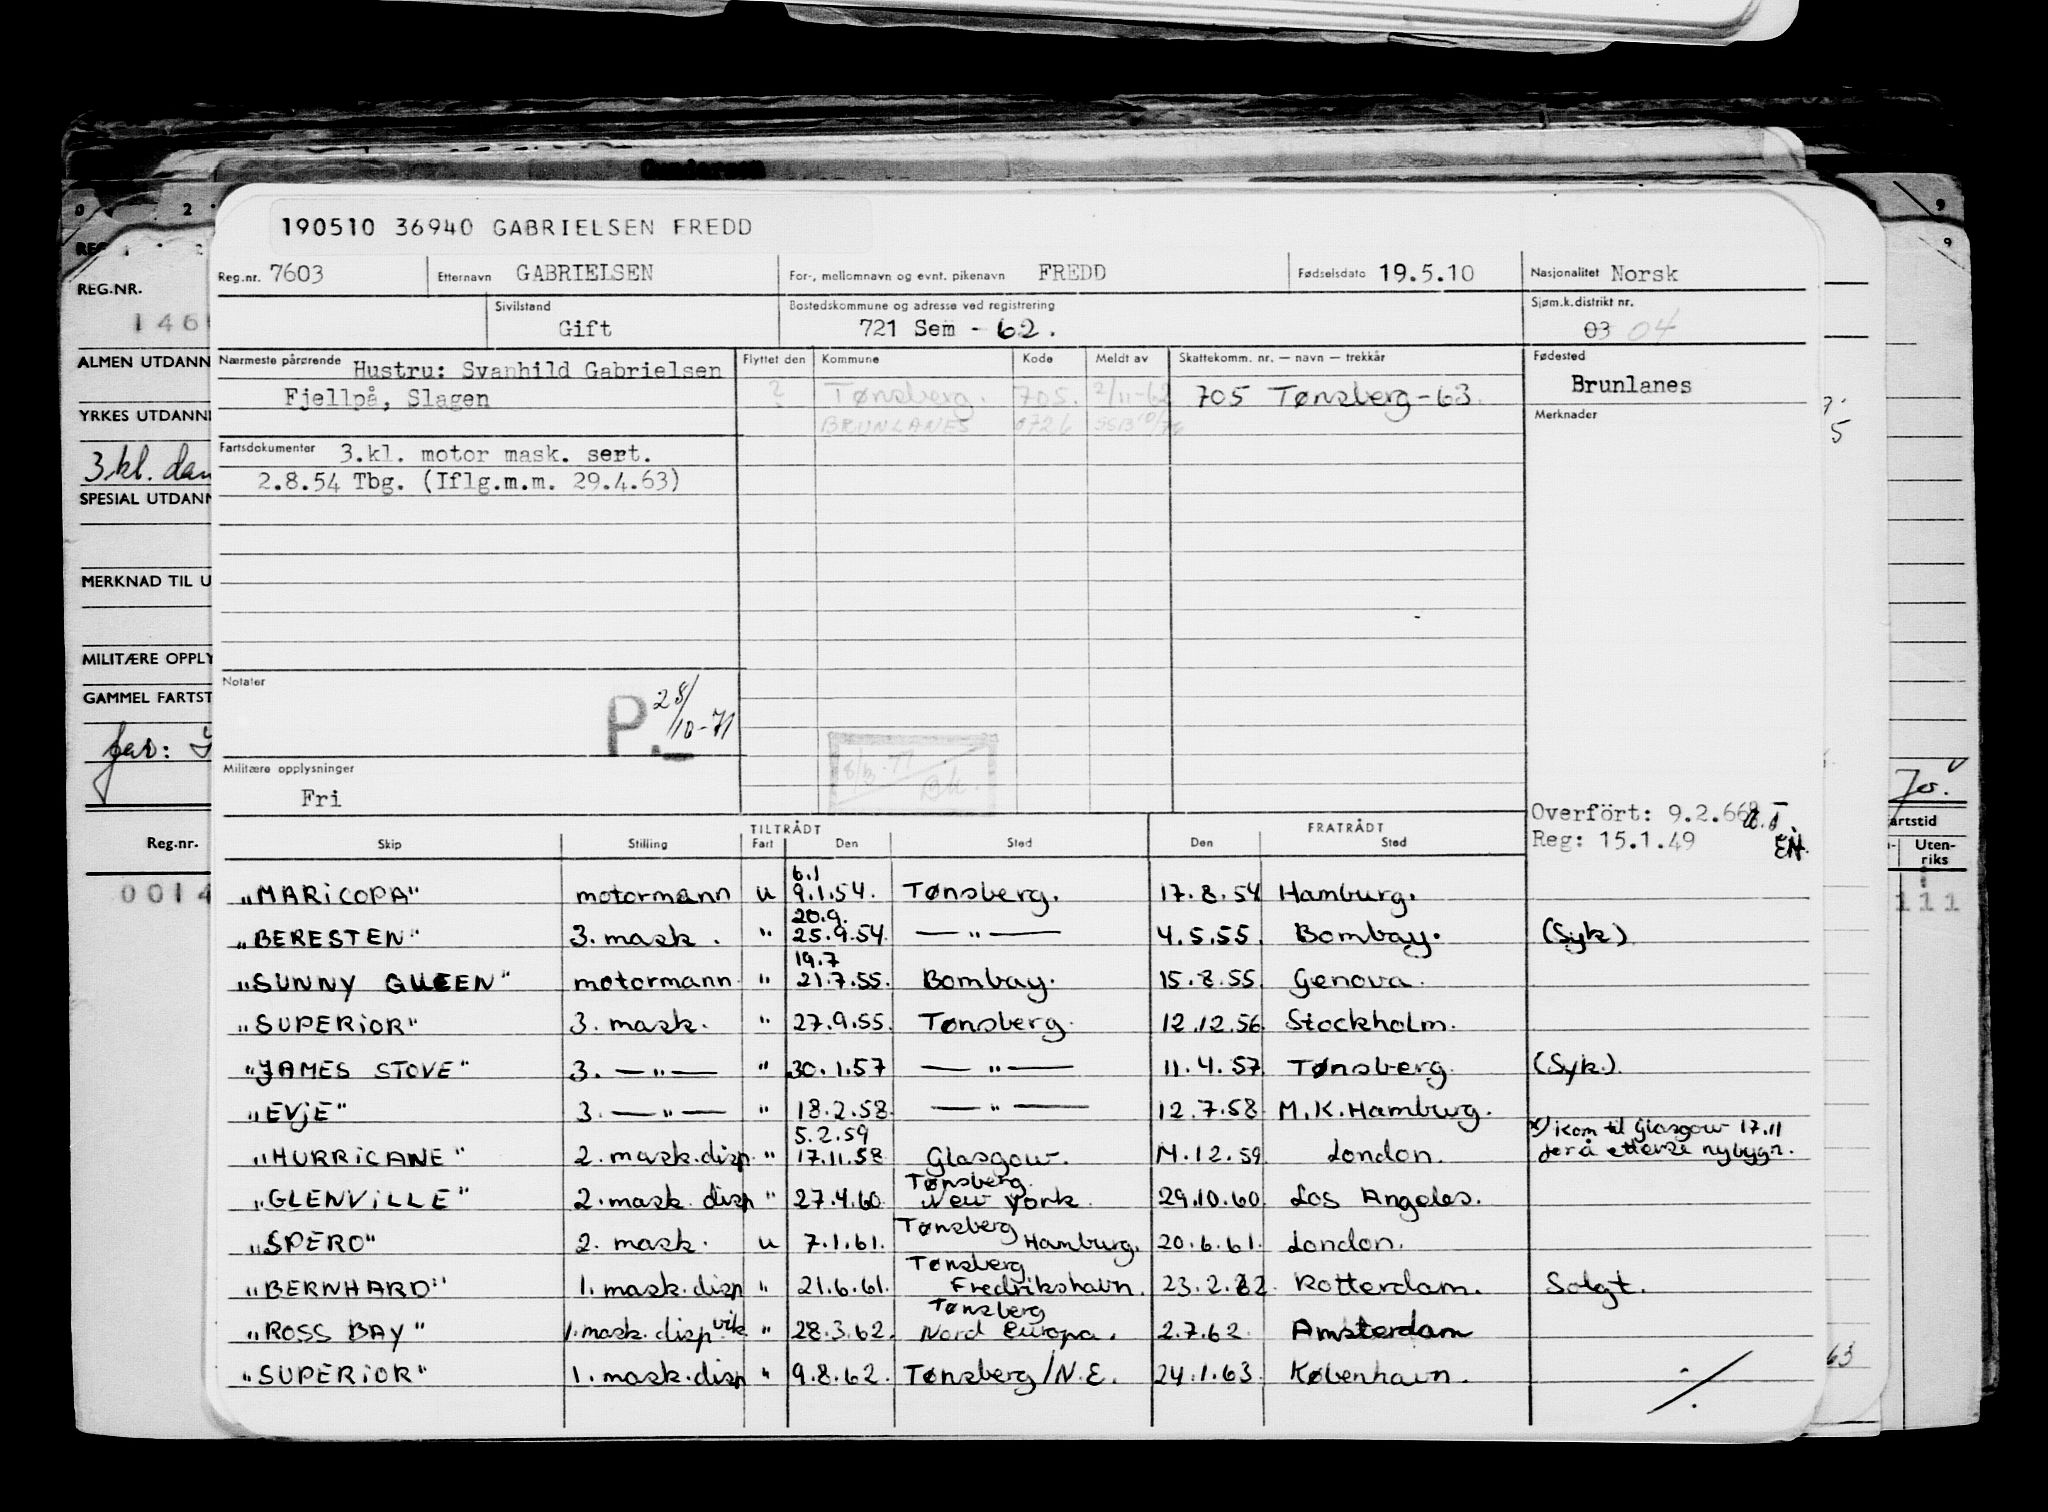 190510 36940 GABRIELSEN FREDD
Reg.nr. 7603 Etternavn GABRIELSEN For-, mellomnavn og evnt. pikenavn FREDD Fødselsdato 19.5.10 Nasjonalitet Norsk
Sivilstand Gift Bostedskommune og adresse ved registrering 721 Sem - 62. Sjøm.k.distrikt nr. 03 04
Nærmeste pårørende Hustru: Svanhild Gabrielsen Flyttet den Kommune Kode Meldt av Skattekomm. nr. — navn — trekkår Fødested
Fjellpå, Slagen ? Tønsberg. 705. 2/11-62 705 Tønsberg-63. Brunlanes
BRUNLANES 0726 Merknader
Fartsdokumenter 3.kl. motor mask. sert.
2.8.54 Tbg. (Iflg.m.m. 29.4.63)
Notater
P. 28/10-71
Militære opplysninger
Fri
Overfört: 9.2.66
Reg: 15.1.49
TILTRÅDT FRATRÅDT
Skip Stilling Fart Den Sted Den Sted
6.1
"MARICOPA" motormann u 9.1.54. Tønsberg. 17.8.54 Hamburg.
20.9.
"BERESTEN" 3. mask. " 25.9.54. — " — 4.5.55. Bombay. (Syk)
19.7
"SUNNY QUEEN" motormann " 21.7.55. Bombay. 15.8.55 Genova.
"SUPERIOR" 3. mask. " 27.9.55. Tønsberg. 12.12.56. Stockholm.
"JAMES STOVE" 3. — " — " 30.1.57 — " — 11.4.57. Tønsberg. (Syk.)
"EVJE" 3. — " — " 18.2.58. — " — 12.7.58. M.K. Hamburg.
5.2.59 x) Kom til Glasgow 17.11
"HURRICANE" 2. mask.disp. " 17.11.58 Glasgow. 11.12.59. London. for å etterse nybygn.
Tønsberg.
"GLENVILLE" 2. mask. disp " 27.4.60. New York. 29.10.60. Los Angeles.
Tønsberg
"SPERO" 2. mask. u 7.1.61. Hamburg. 20.6.61. London.
Tønsberg
"BERNHARD" 1. mask.disp " 21.6.61. Fredrikshavn. 23.2.62. Rotterdam. Solgt.
Tønsberg
"ROSS BAY" 1. mask. disp vik " 28.3.62. Nord Europa. 2.7.62. Amsterdam
"SUPERIOR" 1. mask.disp " 9.8.62. Tønsberg/N.E. 24.1.63. København. ./.
REG.NR.
ALMEN UTDANN
YRKES UTDANN
3.kl.
SPESIAL UTDANN
MERKNAD TIL U
MILITÆRE OPPLY
GAMMEL FARTST
Reg.nr.
0014
artstid
Uten-
riks
111
63